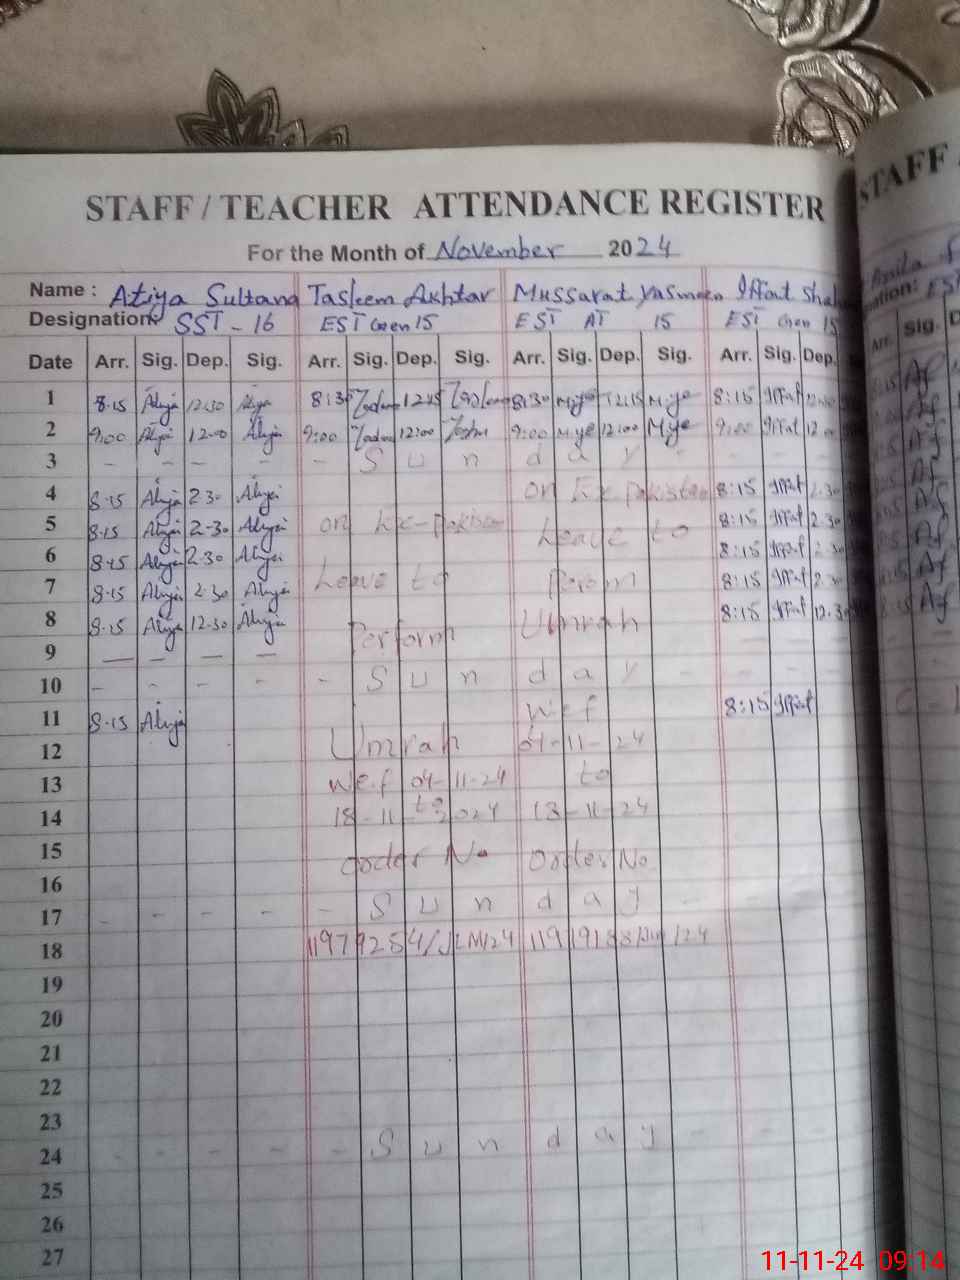 STAFF / TEACHER ATTENDANCE REGISTER
STAFF
For the Month of November 2024
Name : Atiya Sultana Tasleem Akhtar Mussarat Yasmeen Iffat Shah
Designation: SST - 16 EST Gen 15 EST AT 15 EST Gen 15
Date Arr. Sig. Dep. Sig. Arr. Sig. Dep. Sig. Arr. Sig. Dep. Sig. Arr. Sig. Dep. Arr. Sig.
1 8.15 Atiya 12.30 Atiya 8:30 12:15 8:30 Mye 12:15 Mye 8:15 Iffat 12.30
2 9:00 Atiya 12.00 Atiya 9:00 12:00 9:00 Mye 12:00 Mye 9:00 Iffat 12.00
3 - - - - - S u n d a y -
4 8.15 Atiya 2.30 Atiya on Ex-Pakistan 8:15 Iffat 2.30
5 8.15 Atiya 2-30 Atiya on Ex-Pakistan Leave to 8:15 Iffat 2.30
6 8.15 Atiya 2.30 Atiya 8:15 Iffat 2.30
7 8.15 Atiya 2.30 Atiya Leave to Perform 8:15 Iffat 2.30
8 8.15 Atiya 12.30 Atiya Perform Umrah 8:15 Iffat 12.30
9 - - - -
10 - - - - - S u n d a y -
11 8.15 Atiya wef 8:15 Iffat
12 Umrah 04-11-24
13 w.e.f 04-11-24 to
14 18-11-2024 to 18-11-24
15 order No order No
16
17 - - - - - S u n d a y
18
19
20
21
22
23
24 - - - - - S u n d a y -
25
26
27
11-11-24 09:14